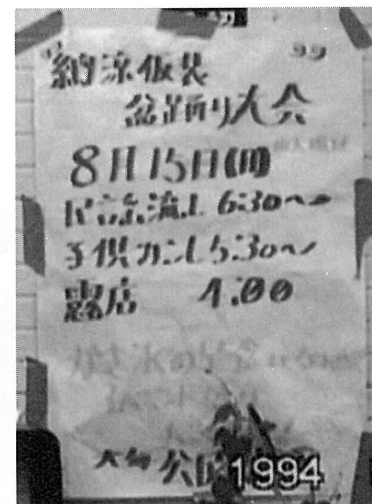 納涼仮装
盆踊り大会
8月15日(月)
民謡流し 6:30〜
子供 5:30〜
露店 4.00
公
1994